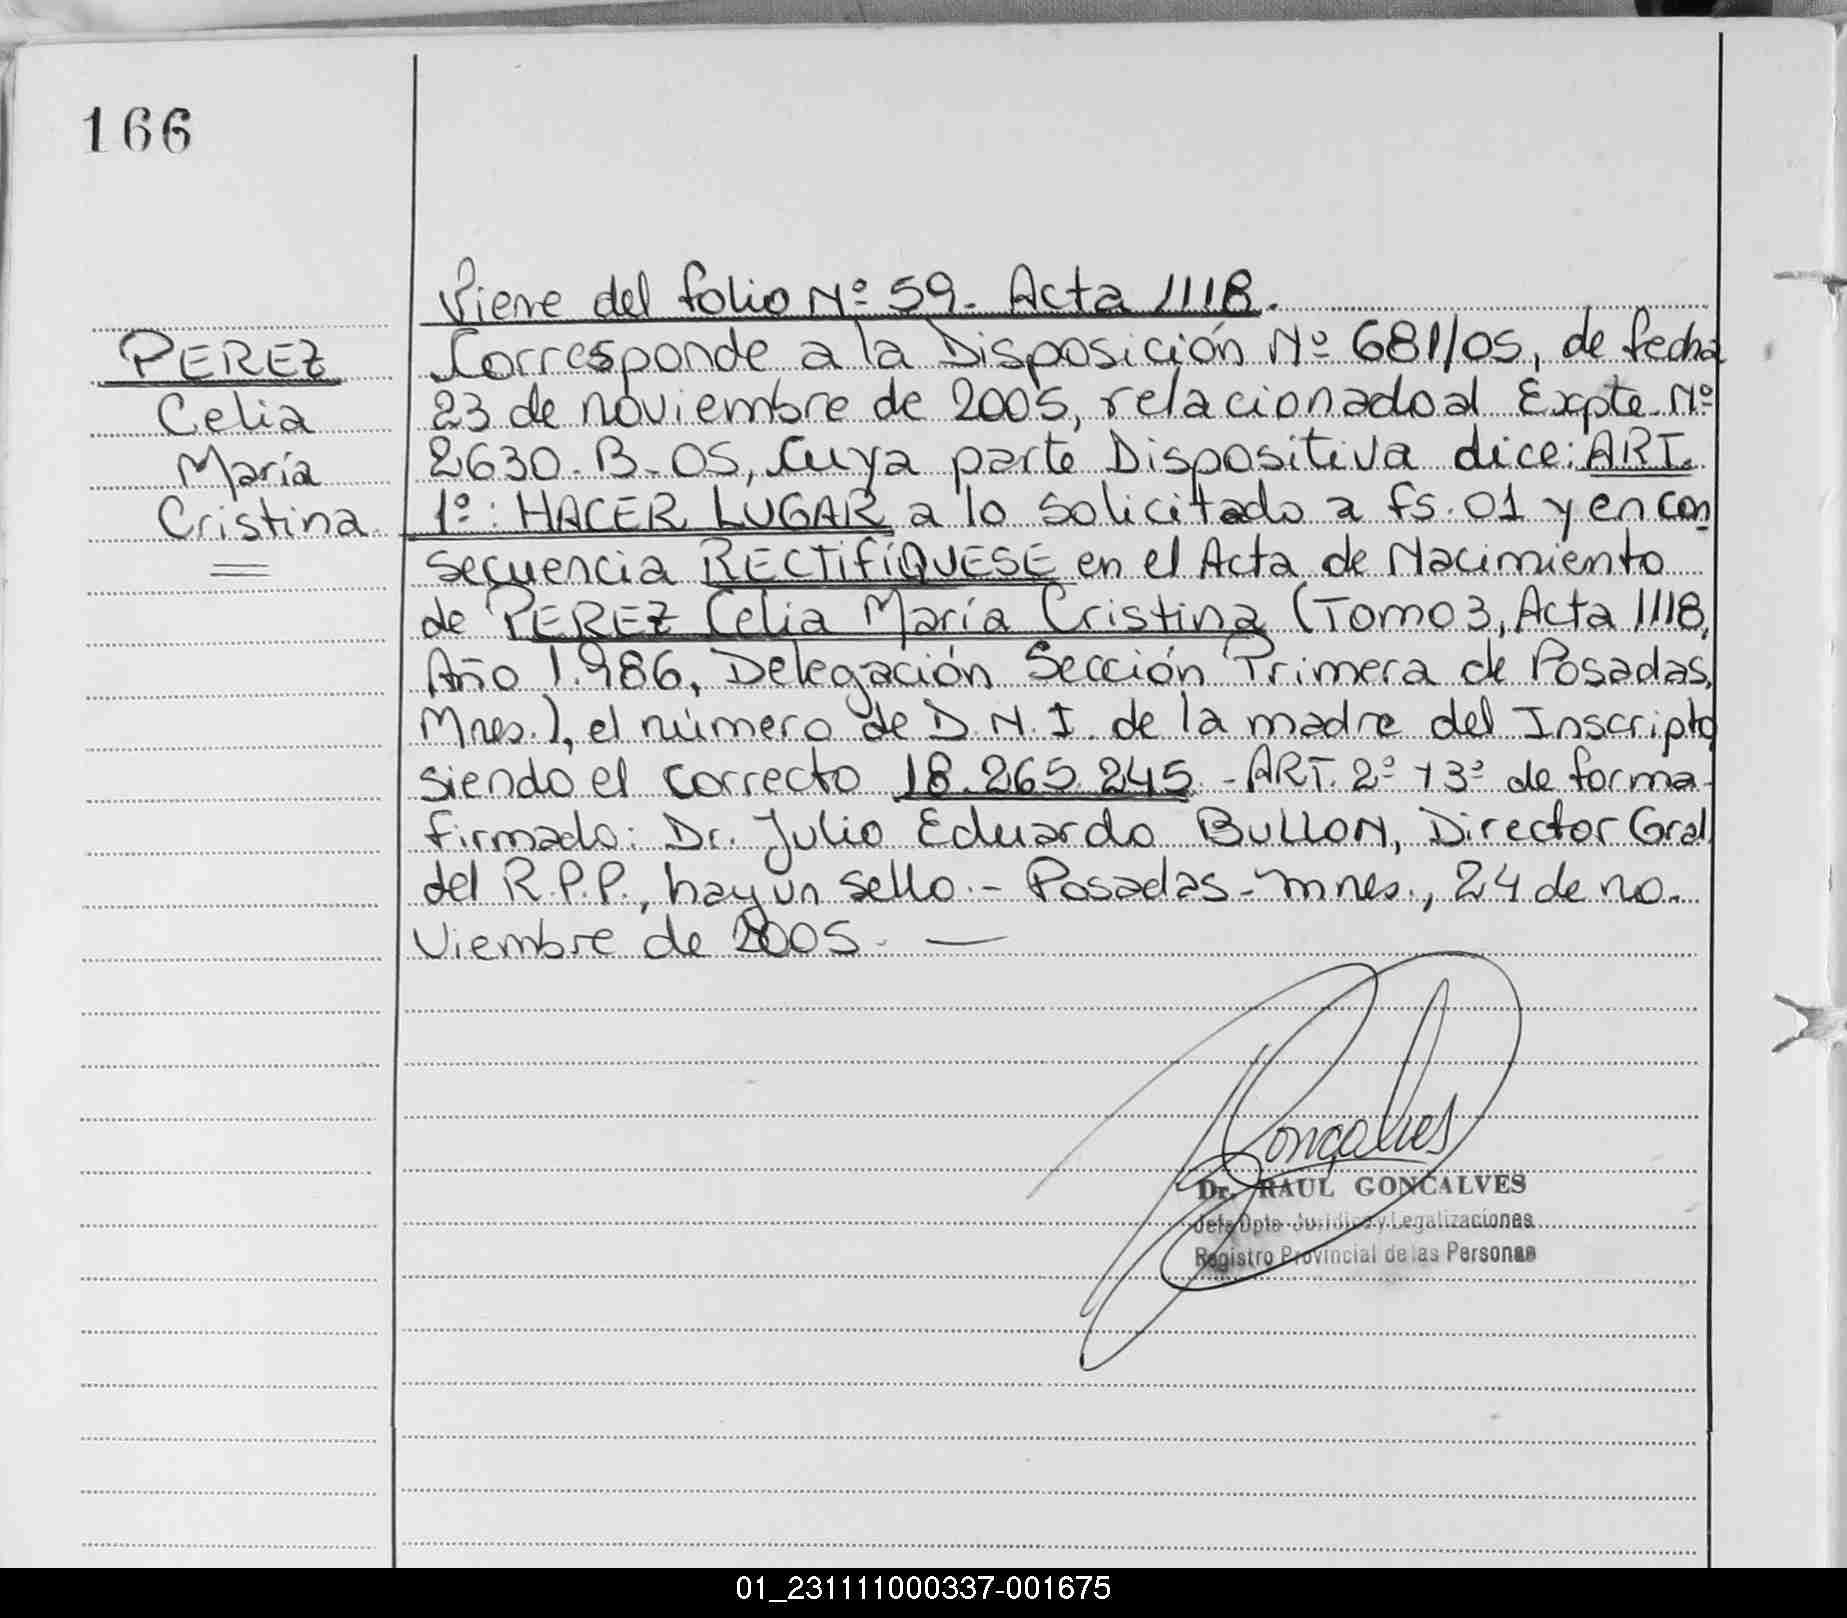 166
Viene del folio Nº 59. Acta 1118.
PEREZ
Celia
María
Cristina.
Corresponde a la Disposición Nº 681/05, de fecha
23 de noviembre de 2005, relacionado al Expte. Nº
2630-B-05, Cuya parte Dispositiva dice: ART.
1º: HACER LUGAR a lo solicitado a fs. 01 y en con
secuencia RECTIFÍQUESE en el Acta de Nacimiento
de PEREZ Celia María Cristina (Tomo 3, Acta 1118,
Año 1.986, Delegación Sección Primera de Posadas,
Mnes.), el número de D.N.I. de la madre del Inscripto
siendo el correcto 18.265.245 - ART. 2º y 3º de forma-
firmado: Dr. Julio Eduardo BULLON, Director Gral
del R.P.P., hay un sello.- Posadas-mnes., 24 de no-
viembre de 2005. —
Goncalves
Dr. RAUL GONCALVES
Jefe Dpto Jurídico y Legalizaciones
Registro Provincial de las Personas
01_231111000337-001675